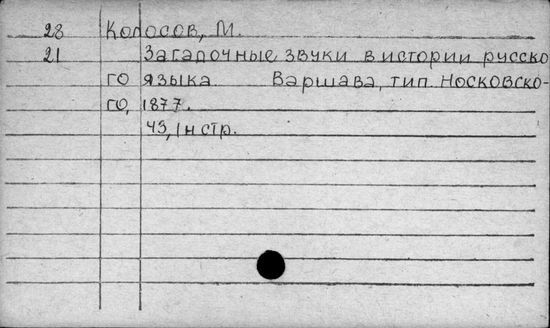 28 Колосов, М.
21 Загадочные звуки в истории русско
го языка Варшава, тип. Носковско-
го, 1877.
43, 1 н стр.